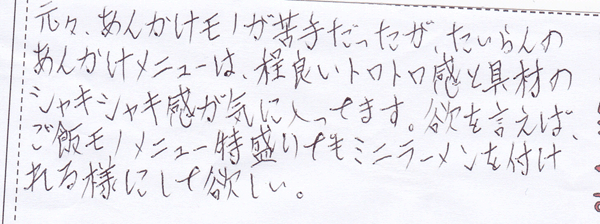 元々、あんかけモノが苦手だったが、たいらんの
あんかけメニューは、程良いトロトロ感と具材の
シャキシャキ感が気に入ってます。欲を言えば、
ご飯モノメニュー特盛りでもミニラーメンを付け
れる様にして欲しい。